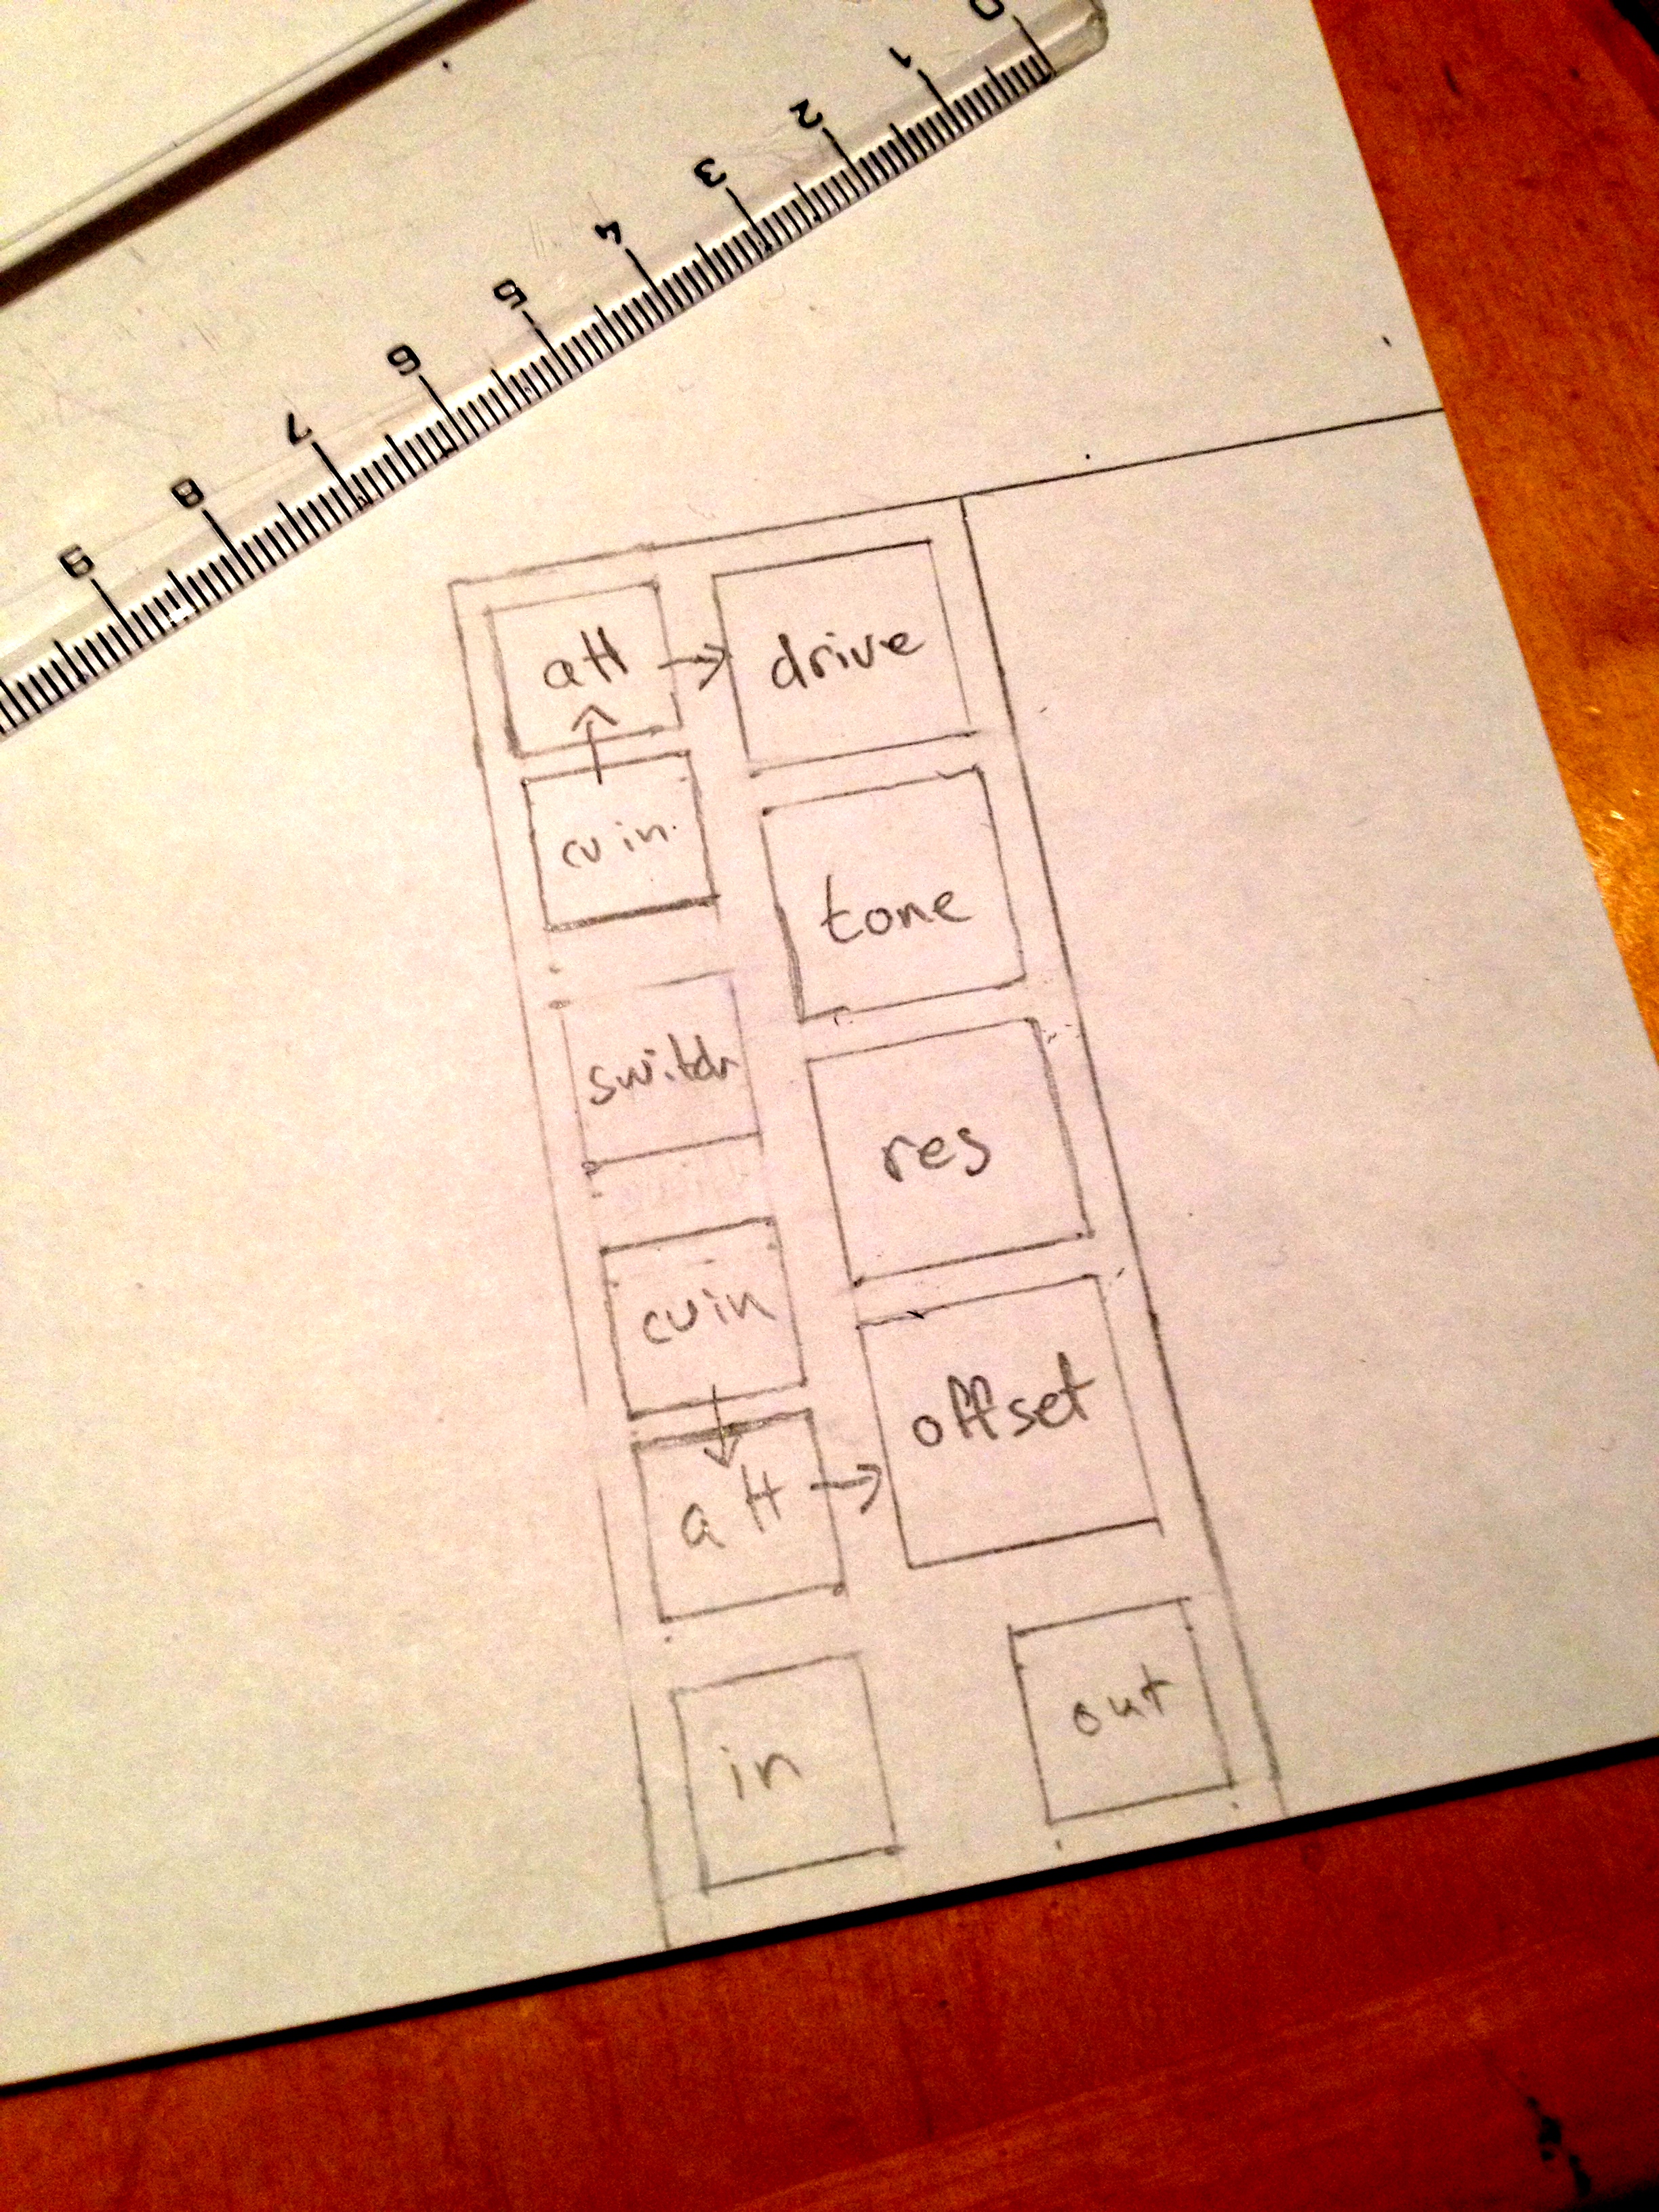 0 1 2 3 4 5 6 7 8 9
att → drive
cv in
tone
switch
res
cv in
offset
att →
in
out